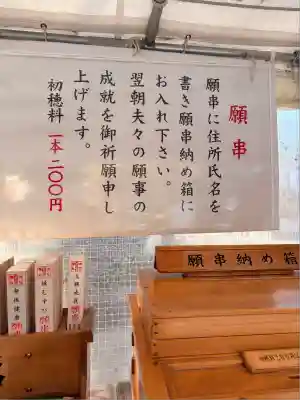 願串
願串に住所氏名を
書き願串納め箱に
お入れ下さい。
翌朝夫々の願事の
成就を御祈願申し
上げます。
初穂料 一本 二〇〇円
願串納め箱
身体健康
縁むすび